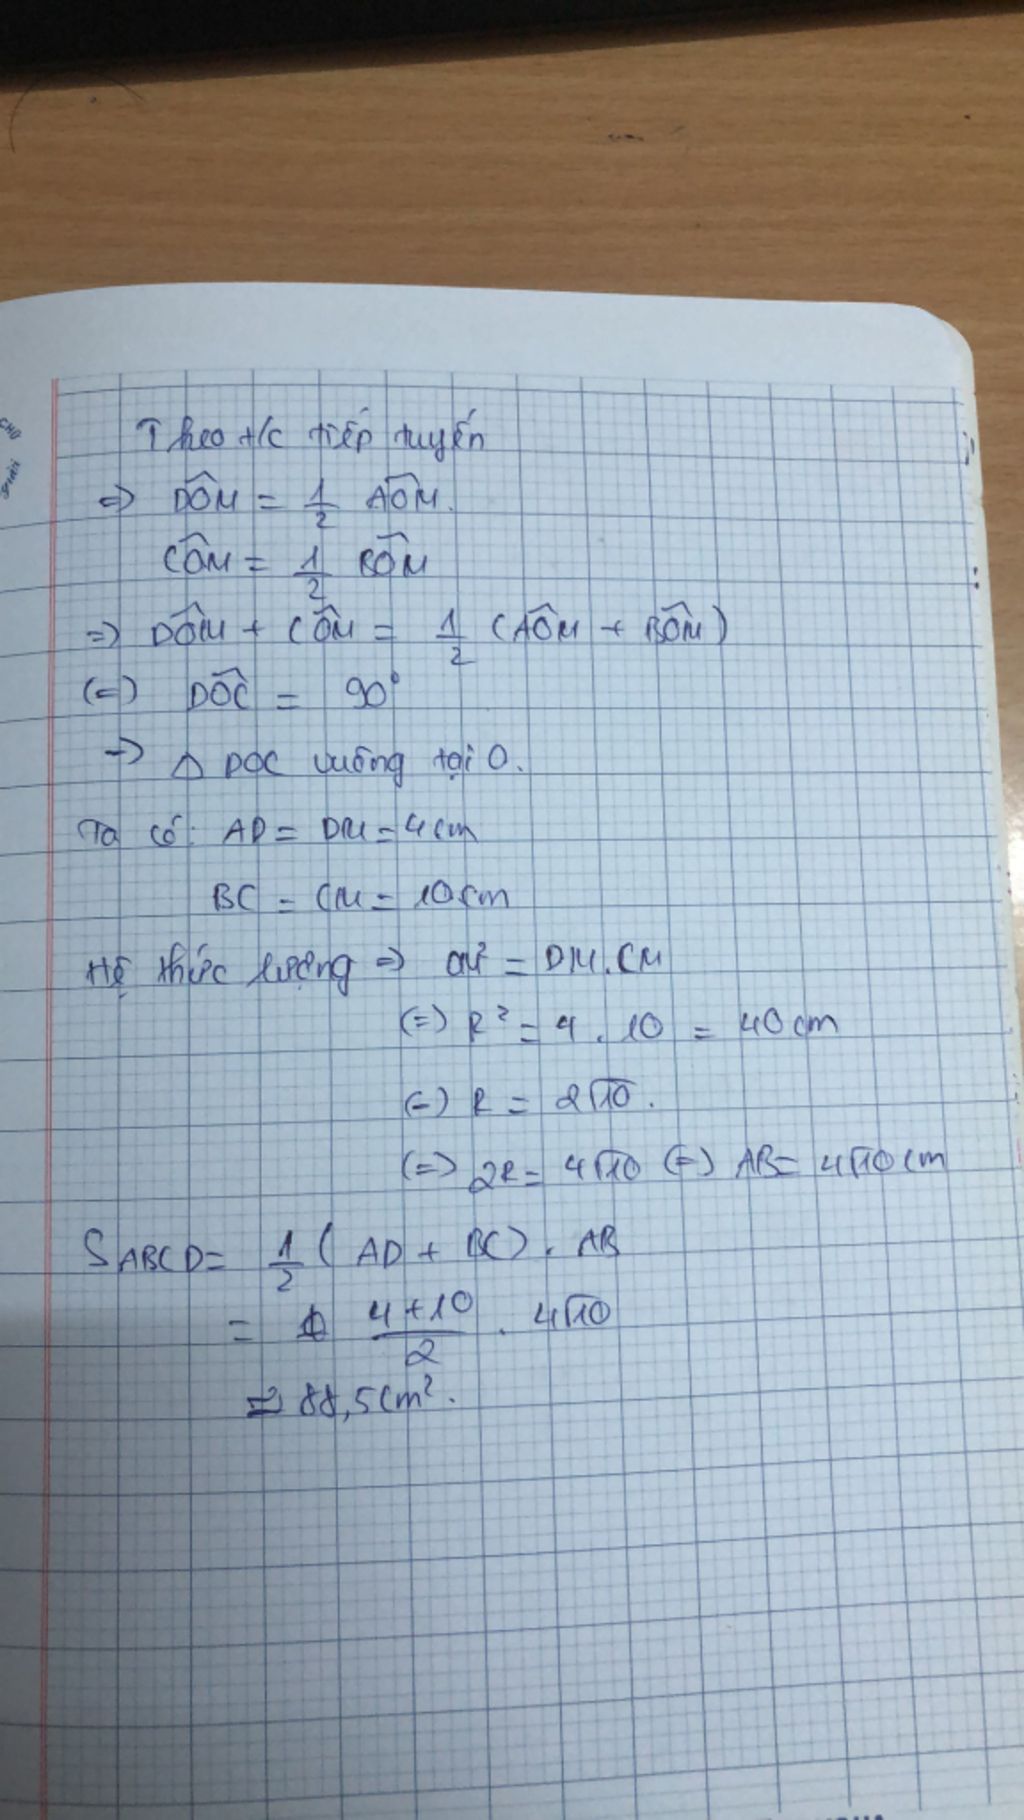 Theo t/c tiếp tuyến
=> DÔM = 1/2 AÔM.
CÔM = 1/2 BÔM
=> DÔM + CÔM = 1/2 (AÔM + BÔM)
(=) DÔC = 90°
-> Δ DOC vuông tại O.
Ta có: AD = DM = 4cm
BC = CM = 10cm
Hệ thức lượng => OM² = DM.CM
(=) R² = 4 . 10 = 40cm
(=) R = 2√10.
(=) 2R = 4√10 (=) AB = 4√10cm
S ABCD = 1/2 ( AD + BC) . AB
= (4+10)/2 . 4√10
≈ 88,5cm².